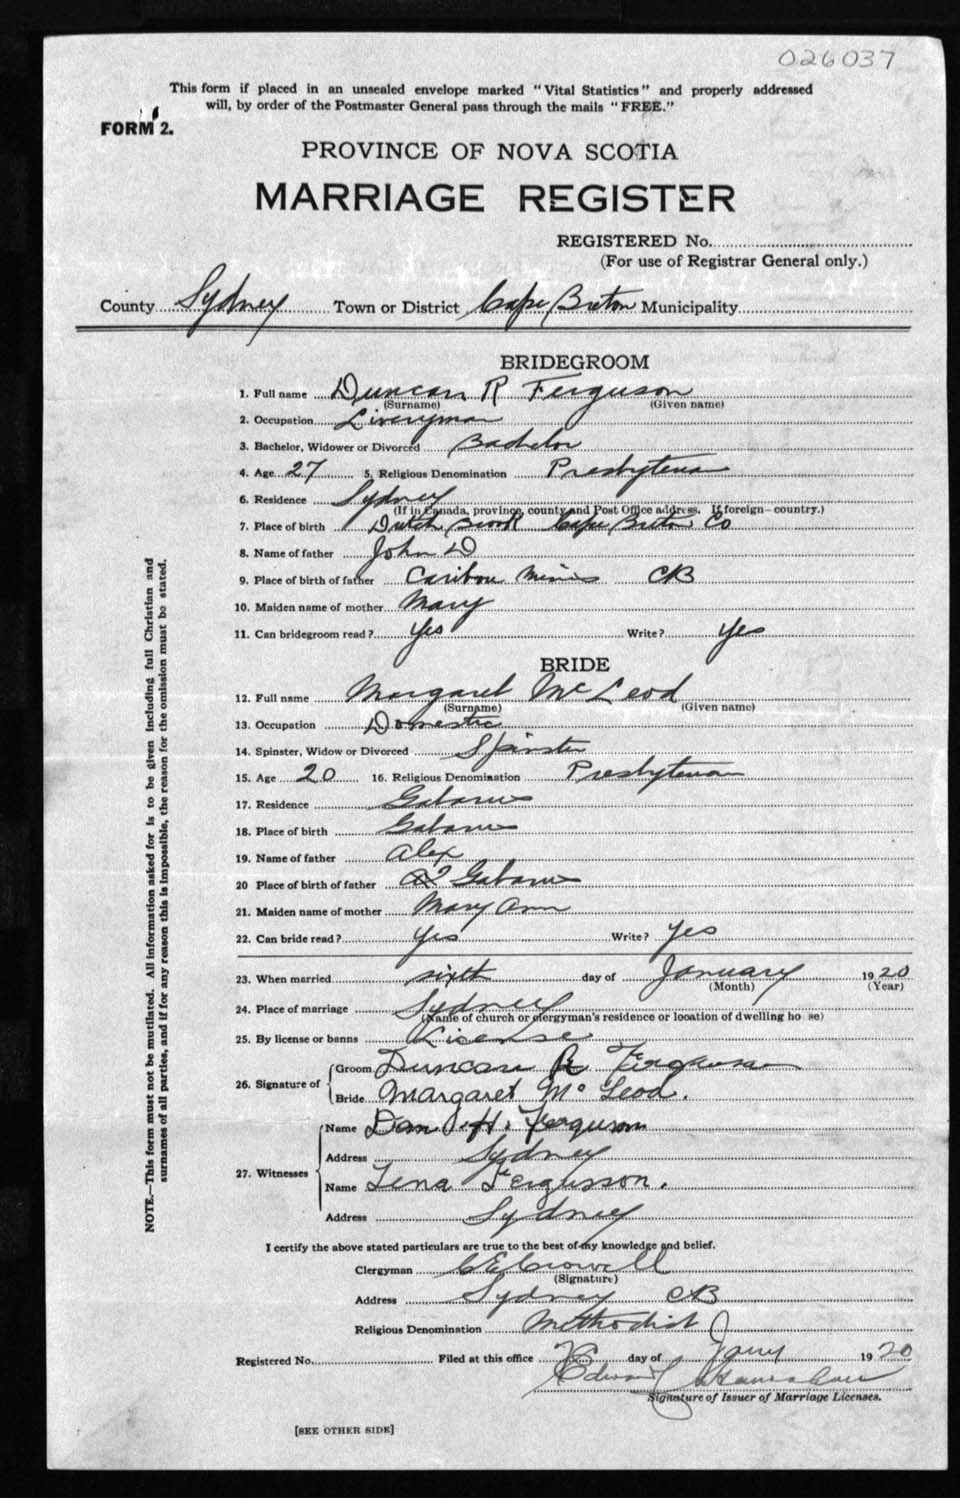 026037
This form if placed in an unsealed envelope marked "Vital Statistics" and properly addressed
will, by order of the Postmaster General pass through the mails "FREE."
FORM 2.
PROVINCE OF NOVA SCOTIA
MARRIAGE REGISTER
REGISTERED No.
(For use of Registrar General only.)
County Sydney Town or District Cape Breton Municipality
BRIDEGROOM
1. Full name Duncan R Ferguson
(Surname) (Given name)
2. Occupation Liveryman
3. Bachelor, Widower or Divorced Bachelor
4. Age 27 5. Religious Denomination Presbyterian
6. Residence Sydney
(If in Canada, province, county and Post Office address. If foreign—country.)
7. Place of birth Dutch Brook Cape Breton Co
8. Name of father John D
9. Place of birth of father Caribou Mines CB
10. Maiden name of mother Mary
11. Can bridegroom read? Yes Write? Yes
BRIDE
12. Full name Margaret McLeod
(Surname) (Given name)
13. Occupation Domestic
14. Spinster, Widow or Divorced Spinster
15. Age 20 16. Religious Denomination Presbyterian
17. Residence Gabarus
18. Place of birth Gabarus
19. Name of father Alex
20 Place of birth of father Gabarus
21. Maiden name of mother Mary Ann
22. Can bride read? Yes Write? Yes
23. When married sixth day of January 1920
(Month) (Year)
24. Place of marriage Sydney
(Name of church or clergyman's residence or location of dwelling ho se)
25. By license or banns License
26. Signature of Groom Duncan R Ferguson
Bride Margaret McLeod.
27. Witnesses Name Dan H. Ferguson
Address Sydney
Name Lena Fergusson.
Address Sydney
I certify the above stated particulars are true to the best of my knowledge and belief.
Clergyman C E Crowell
(Signature)
Address Sydney CB
Religious Denomination Methodist
Registered No. Filed at this office day of Jany 1920
Edward
Signature of Issuer of Marriage Licenses.
[SEE OTHER SIDE]
NOTE.—This form must not be mutilated. All information asked for is to be given including full Christian and
surnames of all parties, and if for any reason this is impossible, the reason for the omission must be stated.